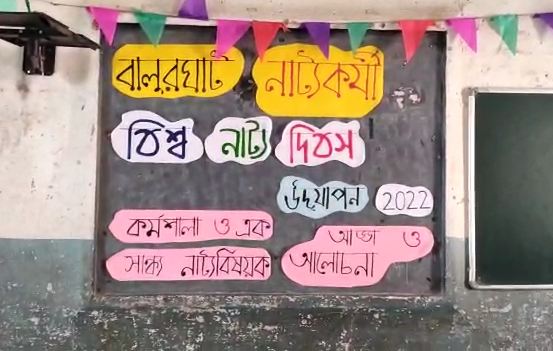 বালুরঘাট নাট্যকর্মী
বিশ্ব নাট্য দিবস
উদযাপন 2022
কর্মশালা ও এক
সান্ধ্য নাট্যবিষয়ক
আড্ডা ও
আলোচনা